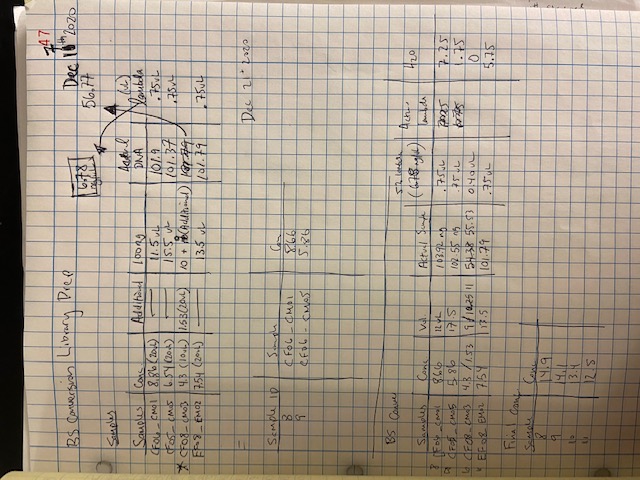 47
BS Conversion Library Prep
Dec 17th 2020
6.78 ng/uL
56.77
Samples
Samples Conc Additional 100ng Actual DNA (uL) lambda
CF06_CM01 8.86 (20uL) — 11.5 uL 101.9 .75uL
CF05_CM05 6.54 (20uL) — 15.5 uL 101.37 .75uL
* CF08-CM03 4.3 (10uL) 1.53 (20uL) 10 + (Additional)
EF08_EM02 7.54 (20uL) — 13.5 uL 101.79 .75uL
=
Dec 21st 2020
Sample ID Sample Con
8 CF06-CM01 8.66
9 CF06-CM05 5.86
BS Conver
Samples Conc Vol. Actual Sample λ lambda (6.78 ng/uL) Active lambda H2O
8 CF06_CM01 8.66 12uL 103.92 ng .75uL 7.25
9 CF05_CM05 5.86 17.5 102.55 ng .75uL 1.75
CF08-CM03 4.3 / 1.53 9 / 11 55.53 0.40uL 0
EF08 EM02 7.54 13.5 101.79 .75uL 5.75
Final Conc
Sample Conc
8 14.9
9 14.1
10 13.4
11 12.5